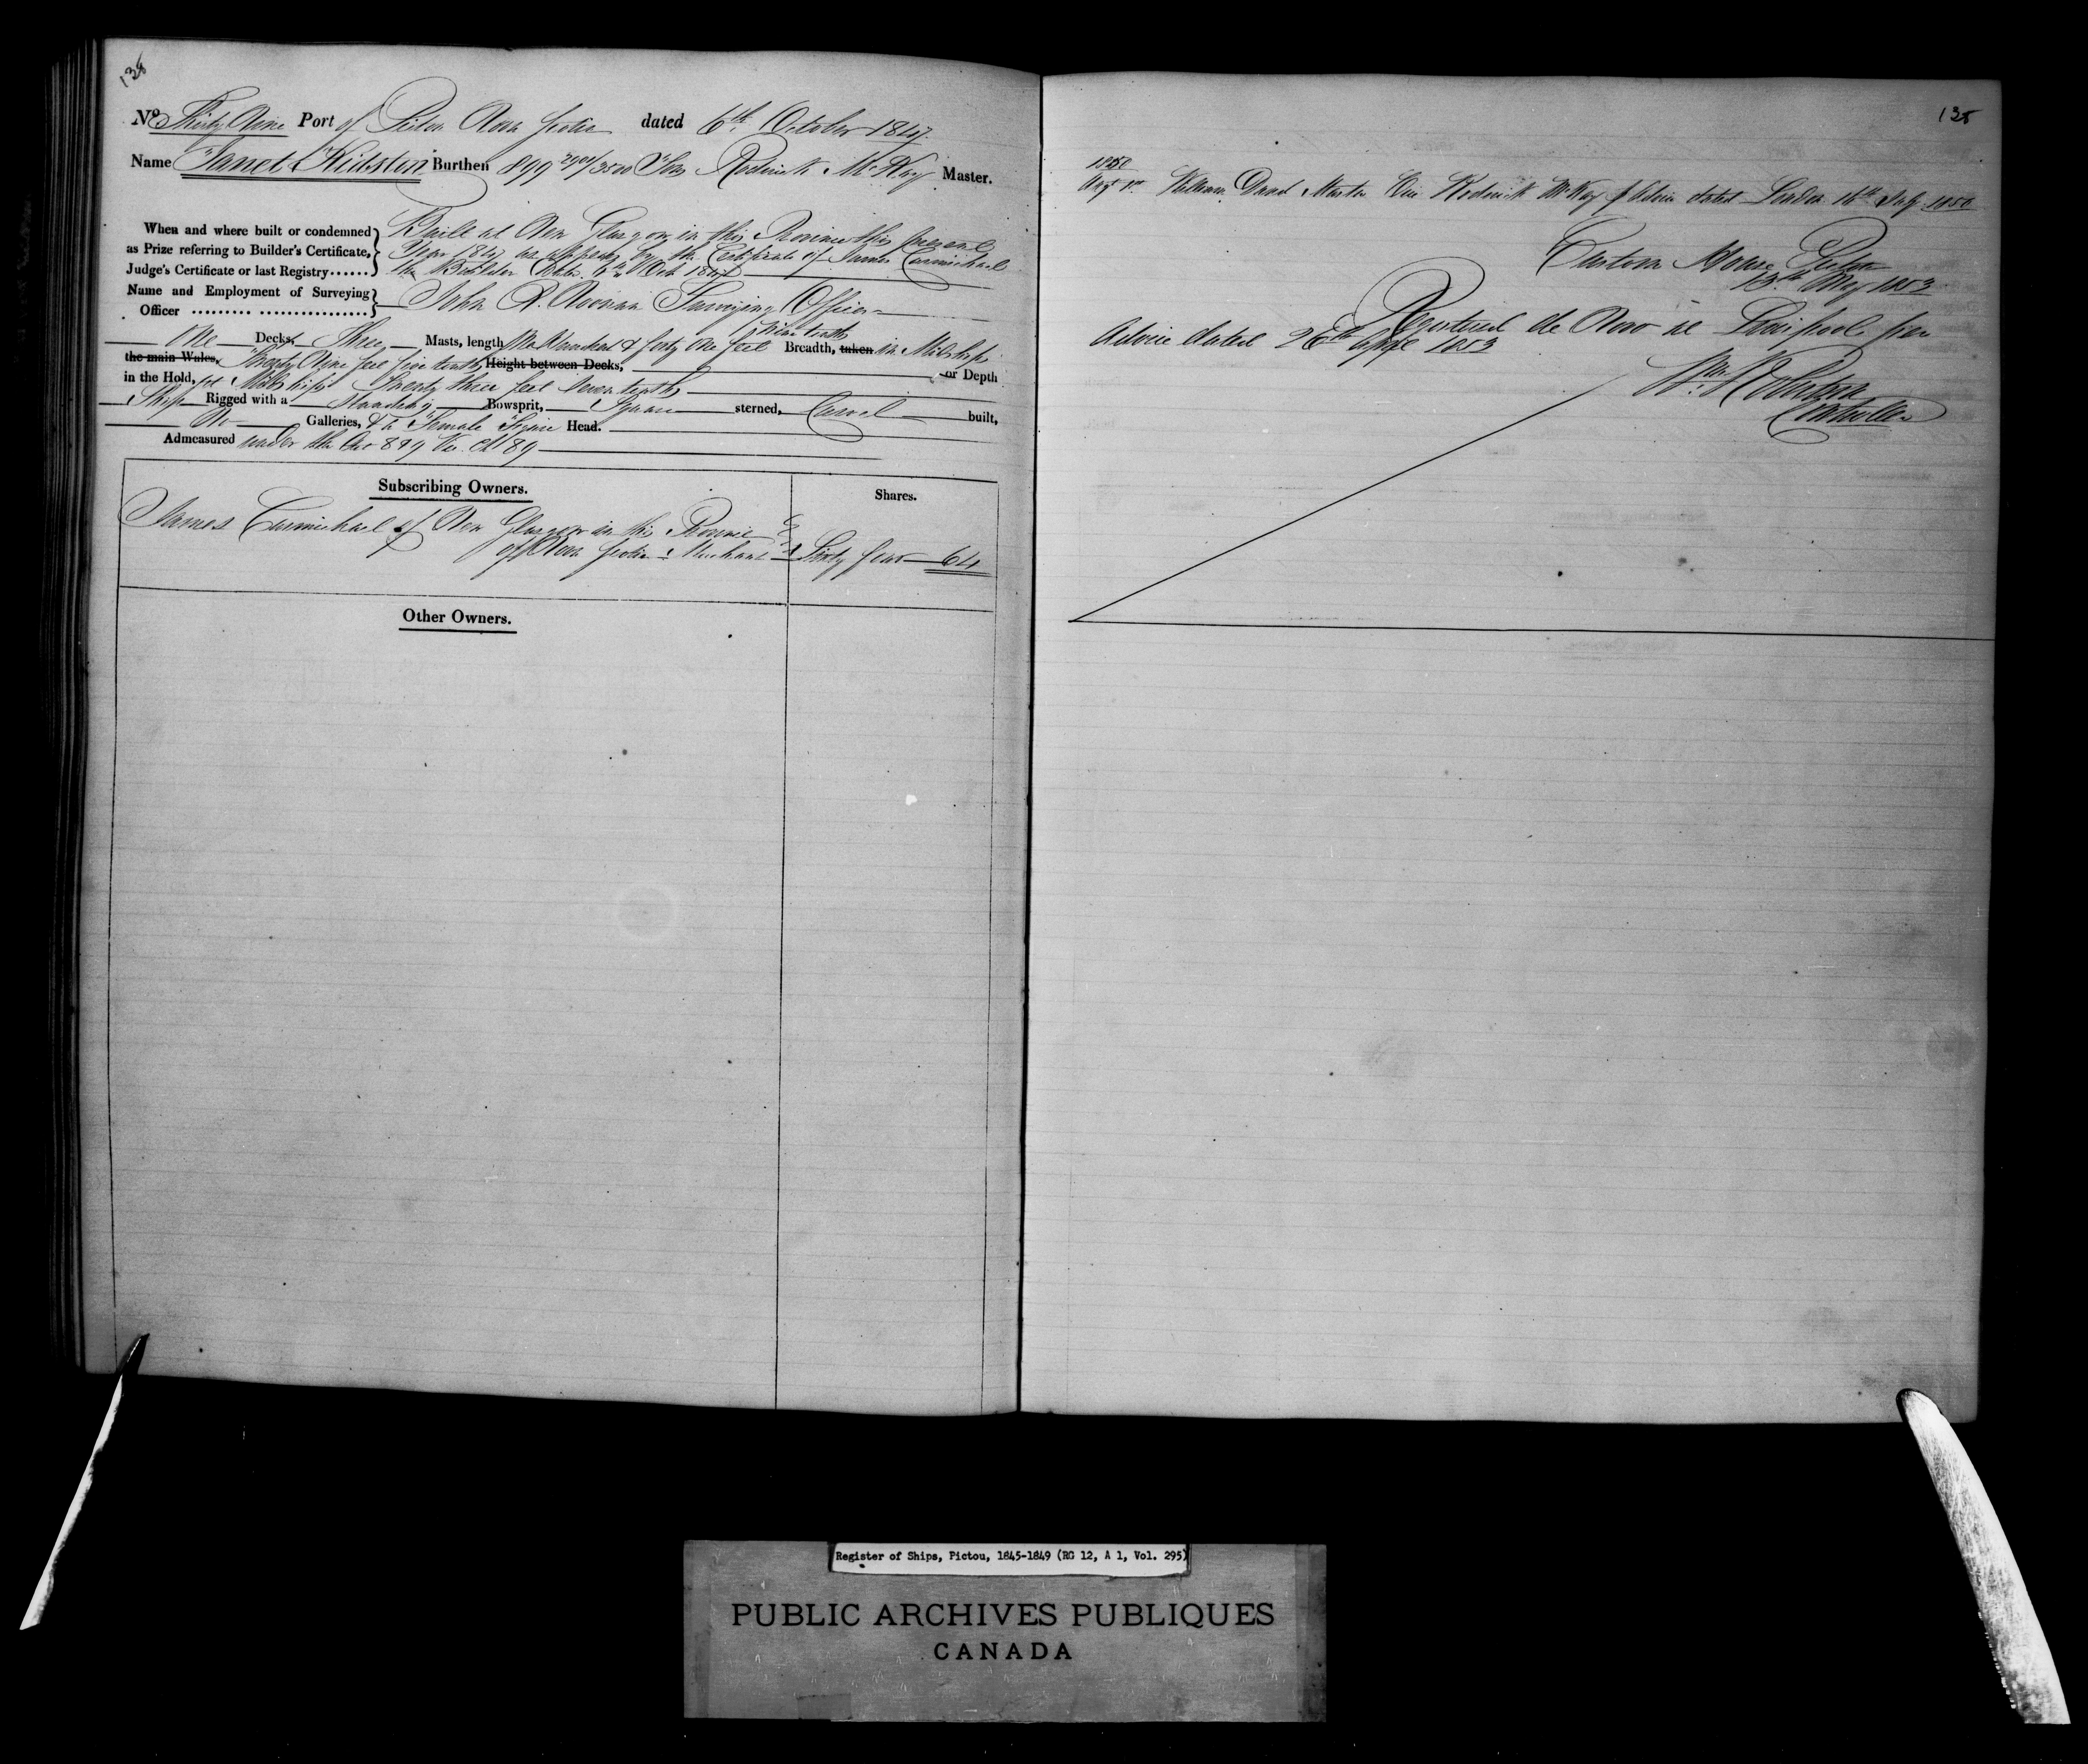 138
No Thirty Nine Port of Pictou Nova Scotia dated 6th October 1847.
Name "Janet Kidston" Burthen 899 2901/3500 Tons Roderick McKay Master.
When and where built or condemned as Prize referring to Builder's Certificate, Judge's Certificate or last Registry......
Built at New Glasgow in this Province this present
Year 1847 as appears by the Certificate of James Carmichael
the Builder Dated 6th Oct 1847
Name and Employment of Surveying Officer ......... ................
John R. Noonan Surveying Officer
One Decks, Three Masts, length One Hundred & forty One feet Nine tenths Breadth, taken in Midships
the main Wales, Twenty Nine feet five tenths, Height between Decks, or Depth
in the Hold, at Midships Twenty three feet Seven tenths
Ship Rigged with a Standing Bowsprit, Square sterned, Carvel built,
No Galleries, & a "Female" Figure Head.
Admeasured under the Act 8 & 9 Vic. Ch 89
Subscribing Owners.
Shares.
James Carmichael of New Glasgow in this Province
of Nova Scotia Merchant
Sixty four 64
Other Owners.
138
1850
Augt William Master Vice Roderick McKay p Advice dated London 16th July 1850
Custom House Pictou
13th May 1853
Registered de Novo at Liverpool per
Advice dated 26th April 1853
Wm. Robertson
Controller
Register of Ships, Pictou, 1845-1849 (RG 12, A 1, Vol. 295)
PUBLIC ARCHIVES PUBLIQUES
CANADA